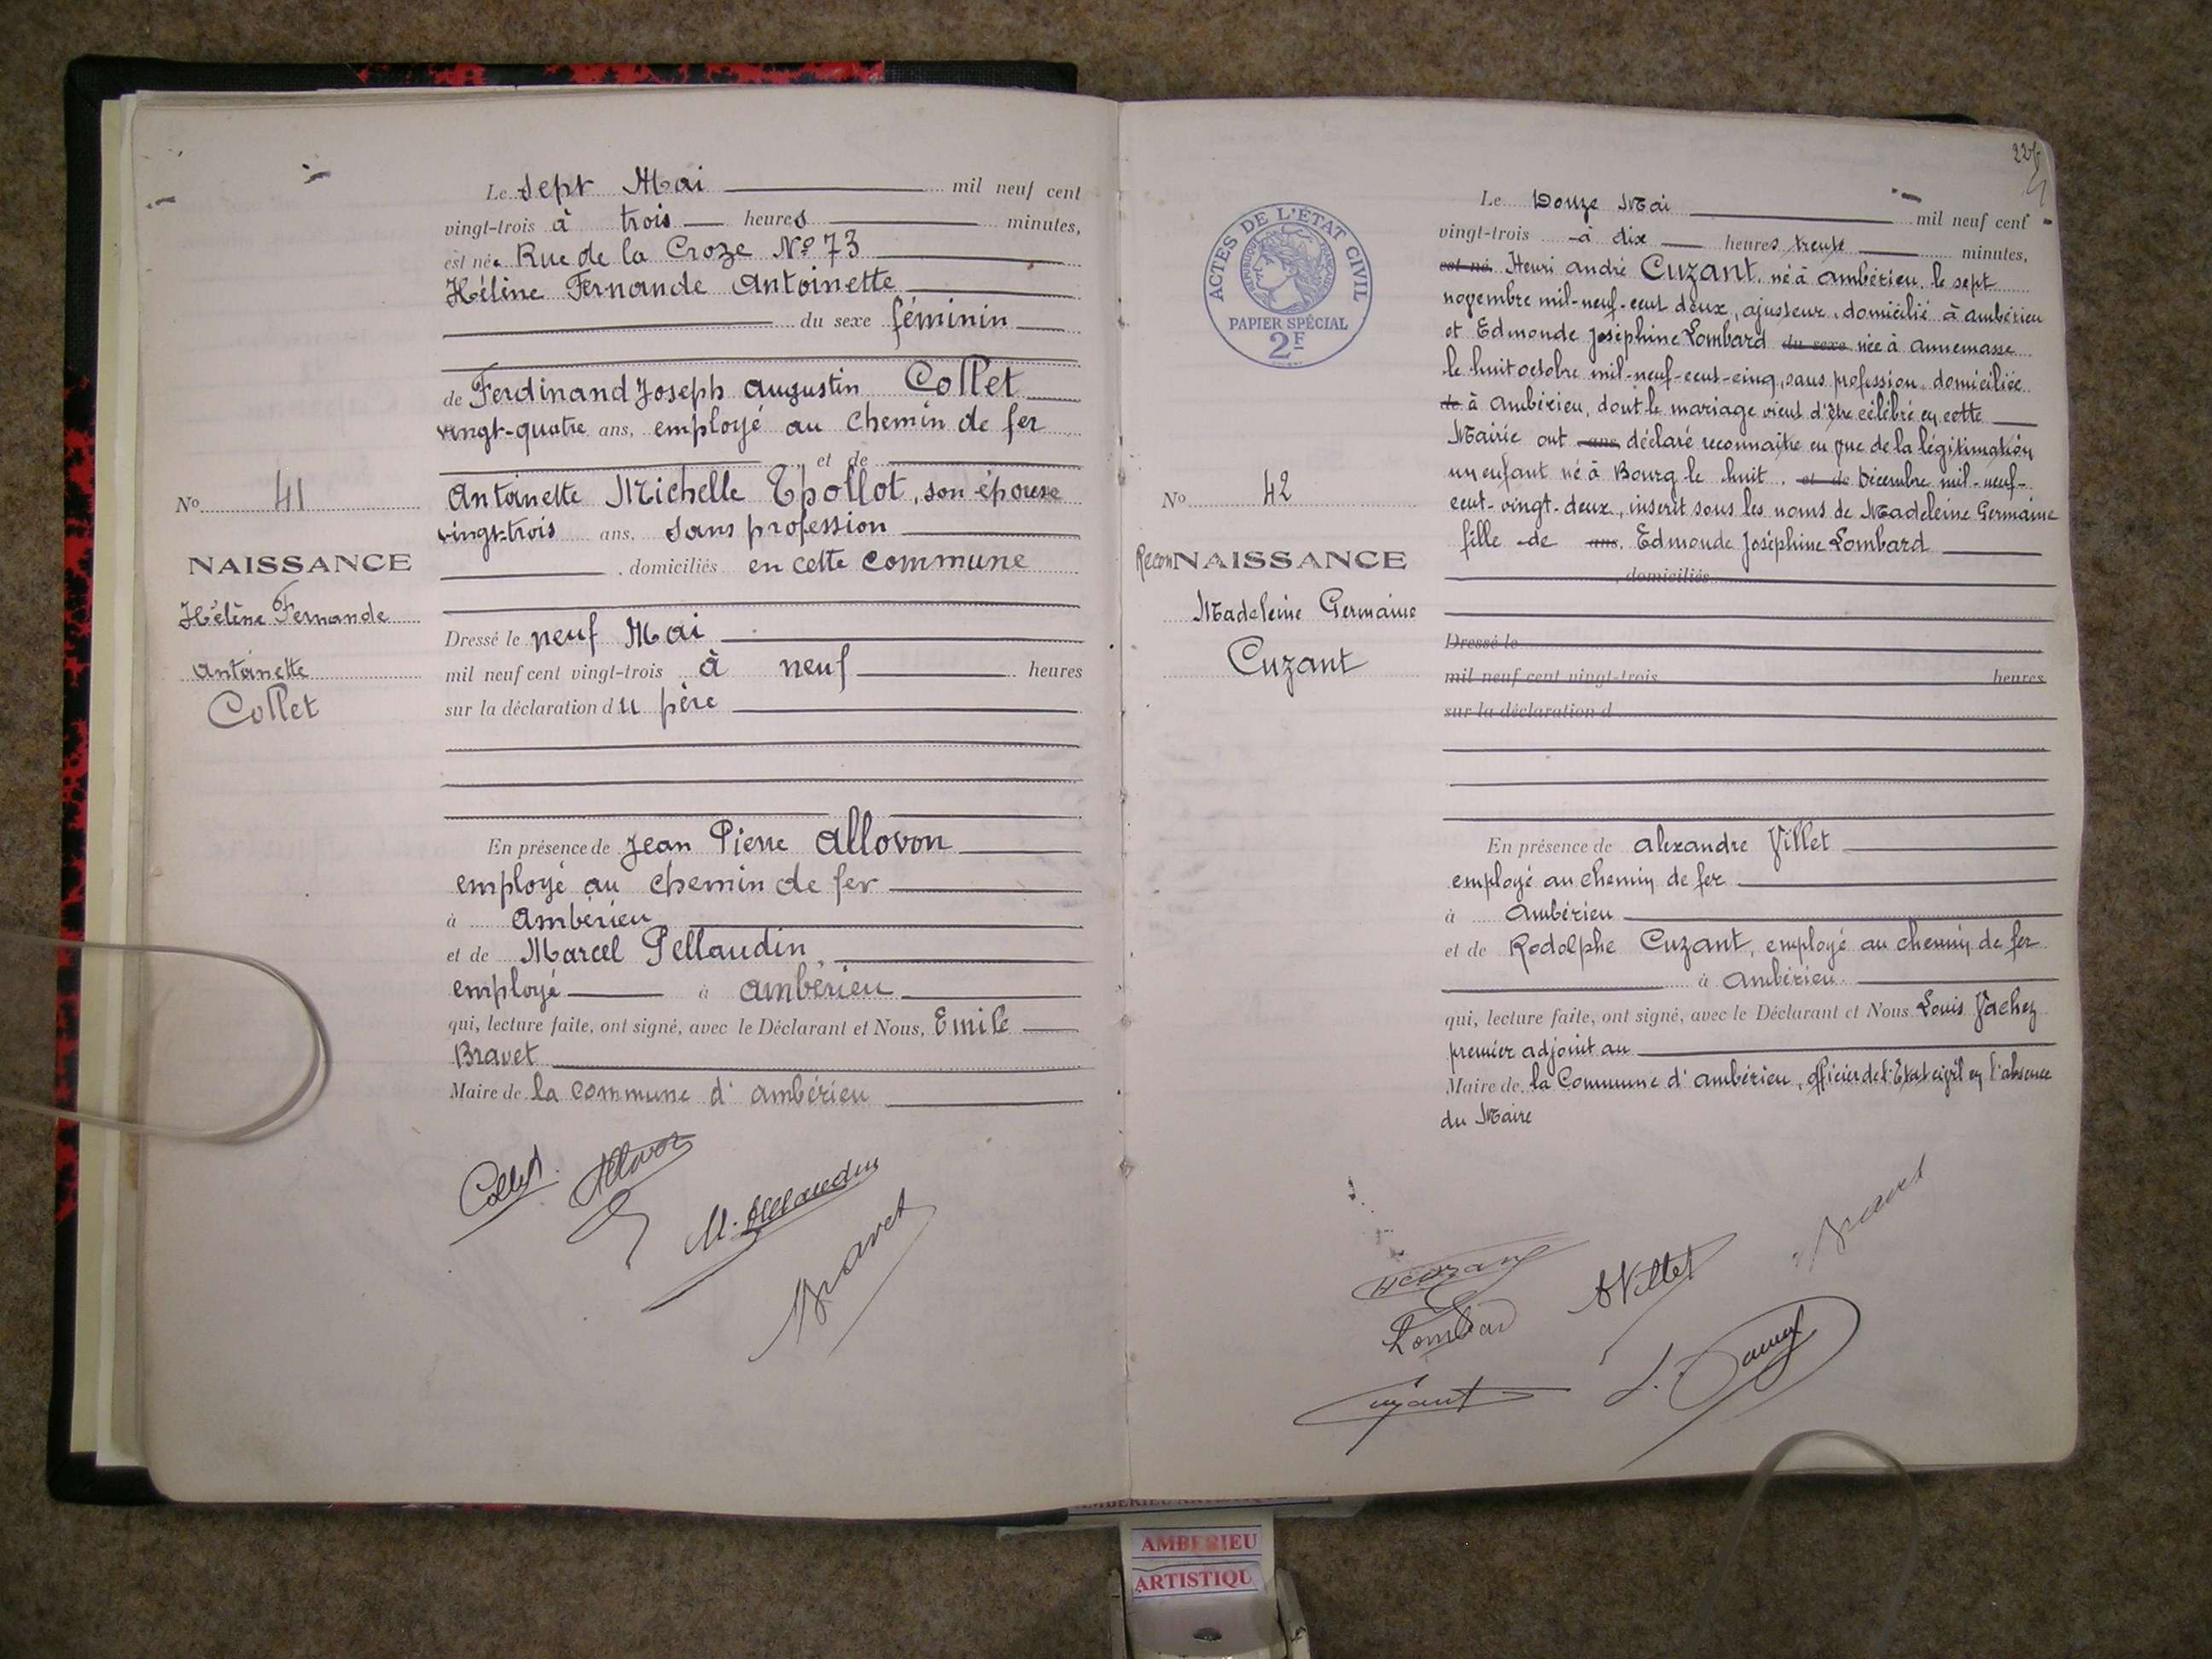 Le sept Mai mil neuf cent
vingt-trois à trois heures minutes,
est née Rue de la Croze No 73
Hélène Fernande Antoinette
du sexe féminin
de Ferdinand Joseph Augustin Collet
vingt-quatre ans, employé au chemin de fer
et de
No 41
Antoinette Michelle , son épouse
vingt-trois ans, sans profession
NAISSANCE
domiciliés en cette commune
Hélène Fernande
Antoinette
Collet
Dressé le neuf Mai
mil neuf cent vingt-trois à neuf heures
sur la déclaration du père
En présence de Jean Pierre Allovon
employé au chemin de fer
à Ambérieu
et de Marcel Pellaudin,
employé à Ambérieu
qui, lecture faite, ont signé, avec le Déclarant et Nous, Emile
Bravet
Maire de la commune d'Ambérieu
Collet
Allovon
M. Pellaudin
Bravet
ACTES DE L'ÉTAT CIVIL
PAPIER SPÉCIAL
2F
Le Douze Mai mil neuf cent
vingt-trois à dix heures trente minutes,
est né Henri André Cuzant, né à Ambérieu, le sept
novembre mil-neuf-cent deux, ajusteur, domicilié à Ambérieu
et Edmonde Joséphine Lombard du sexe née à Annemasse
le huit octobre mil-neuf-cent-cinq, sans profession, domiciliée
de à Ambérieu, dont le mariage vient d'être célébré en cette
Mairie ont ans, déclaré reconnaitre en vue de la légitimation
un enfant né à Bourg le huit, et de Décembre mil-neuf-
cent-vingt-deux, inscrit sous les noms de Madeleine Germaine
fille de ans, Edmonde Joséphine Lombard
domiciliés
No 42
ReconNAISSANCE
Madeleine Germaine
Cuzant
Dressé le
mil neuf cent vingt-trois heures
sur la déclaration d
En présence de Alexandre Villet
employé au chemin de fer
à Ambérieu
et de Rodolphe Cuzant, employé au chemin de fer
à Ambérieu
qui, lecture faite, ont signé, avec le Déclarant et Nous Louis Vachez
premier adjoint au
Maire de la Commune d'Ambérieu, officier de l'Etat civil en l'absence
du Maire
Bravet
A Villet
Lombard
Cuzant
AMBERIEU
ARTISTIQU